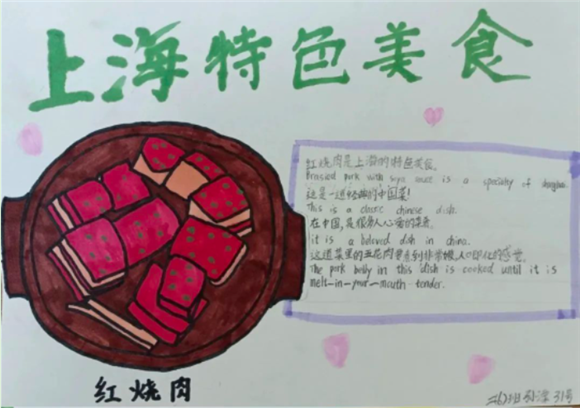 上海特色美食
红烧肉是上海的特色美食。
Braised pork with soye sauce is a specialty of shanghai.
这是一道经典的中国菜!
This is a classic chinese dish.
在中国,是很多人心爱的菜肴。
it is a beloved dish in china.
这道菜里的五花肉要煮到非常嫩,入口即化的感觉。
The pork belly in this dish is cooked until it is
melt-in-your-mouth tender.
红烧肉
31号